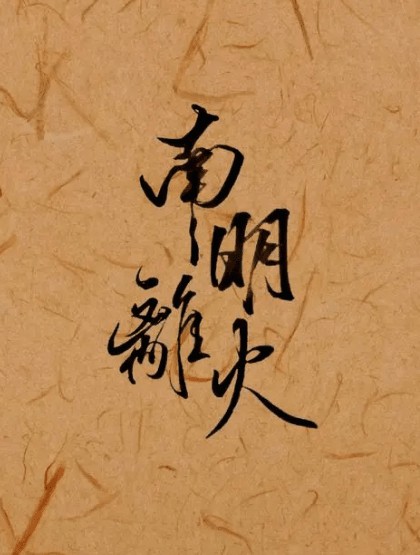 南明離火